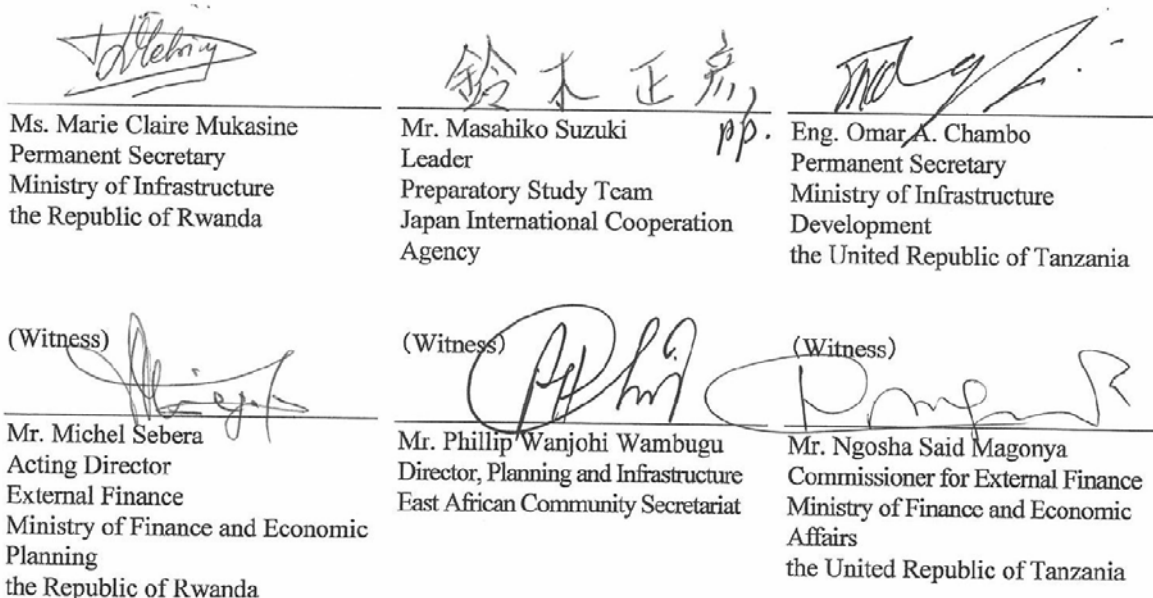 鈴木正彦
pp.
Ms. Marie Claire Mukasine
Permanent Secretary
Ministry of Infrastructure
the Republic of Rwanda
Mr. Masahiko Suzuki
Leader
Preparatory Study Team
Japan International Cooperation
Agency
Eng. Omar A. Chambo
Permanent Secretary
Ministry of Infrastructure
Development
the United Republic of Tanzania
(Witness)
Mr. Michel Sebera
Acting Director
External Finance
Ministry of Finance and Economic
Planning
the Republic of Rwanda
(Witness)
Mr. Phillip Wanjohi Wambugu
Director, Planning and Infrastructure
East African Community Secretariat
(Witness)
Mr. Ngosha Said Magonya
Commissioner for External Finance
Ministry of Finance and Economic
Affairs
the United Republic of Tanzania